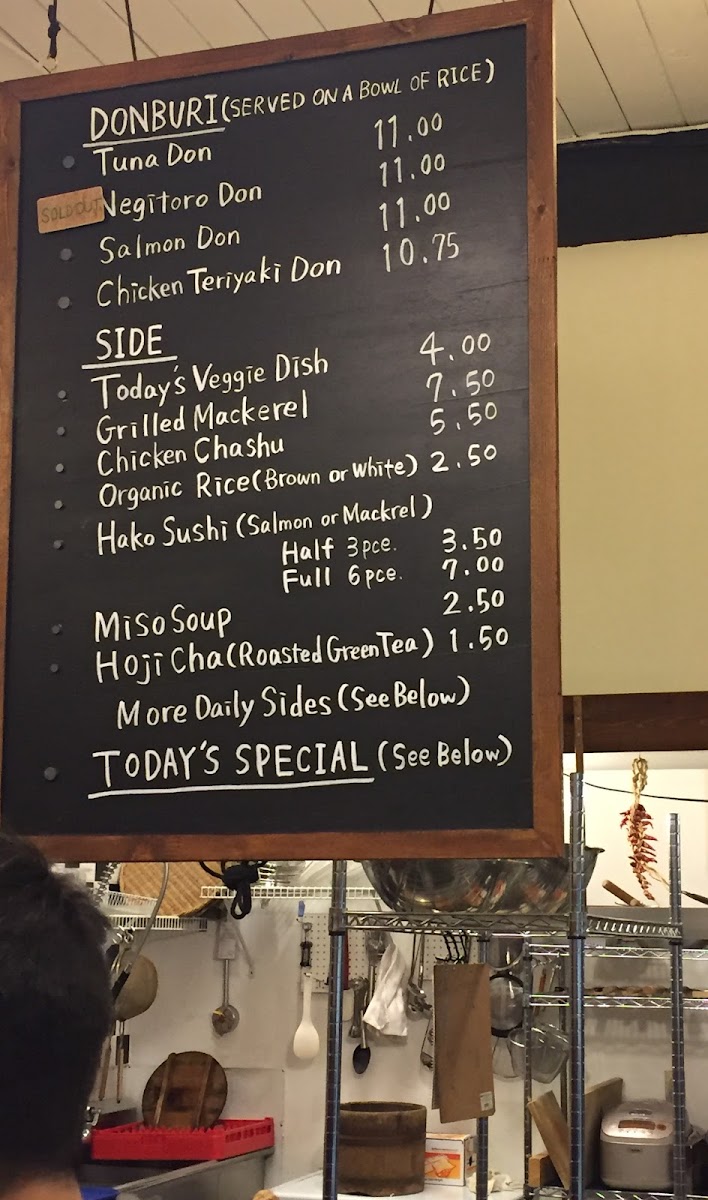 DONBURI (SERVED ON A BOWL OF RICE)
Tuna Don 11.00
SOLD OUT Negitoro Don 11.00
Salmon Don 11.00
Chicken Teriyaki Don 10.75
SIDE
Today's Veggie Dish 4.00
Grilled Mackerel 7.50
Chicken Chashu 5.50
Organic Rice (Brown or White) 2.50
Hako Sushi (Salmon or Mackrel)
Half 3pce. 3.50
Full 6pce. 7.00
Miso Soup 2.50
Hoji Cha (Roasted Green Tea) 1.50
More Daily Sides (See Below)
TODAY'S SPECIAL (See Below)